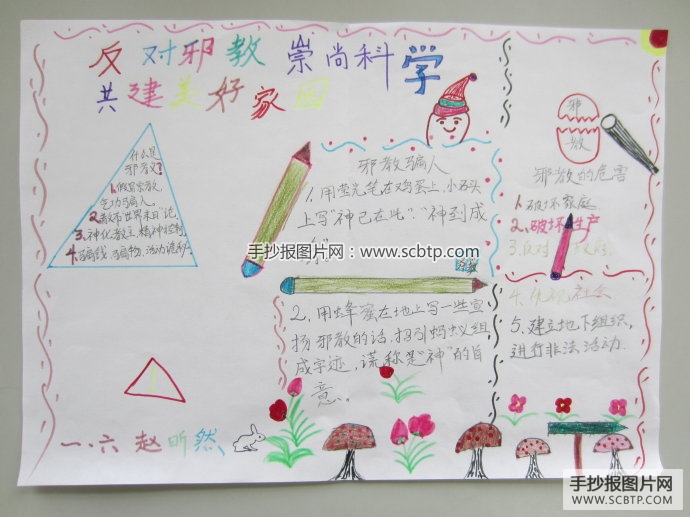 反对邪教 崇尚科学
共建美好家园
什么是
邪教?
1.假冒宗教,
气功骗人
2.散布"世界末日"论
3.神化教主,精神控制
4.骗钱、骗物、活动诡秘
邪教骗人
1.用萤光笔在鸡蛋上,小石头
上写"神已在此""神到成
功"
2.用蜂蜜在地上写一些宣
扬邪教的话,招引蚂蚁组
成字迹,谎称是"神"的旨
意。
邪
教
邪教的危害
1.破坏家庭
2.破坏生产
3.反对政府
4.危及社会
5.建立地下组织,
进行非法活动.
一.六 赵昕然
手抄报图片网:www.scbtp.com
手抄报图片网
www.SCBTP.COM